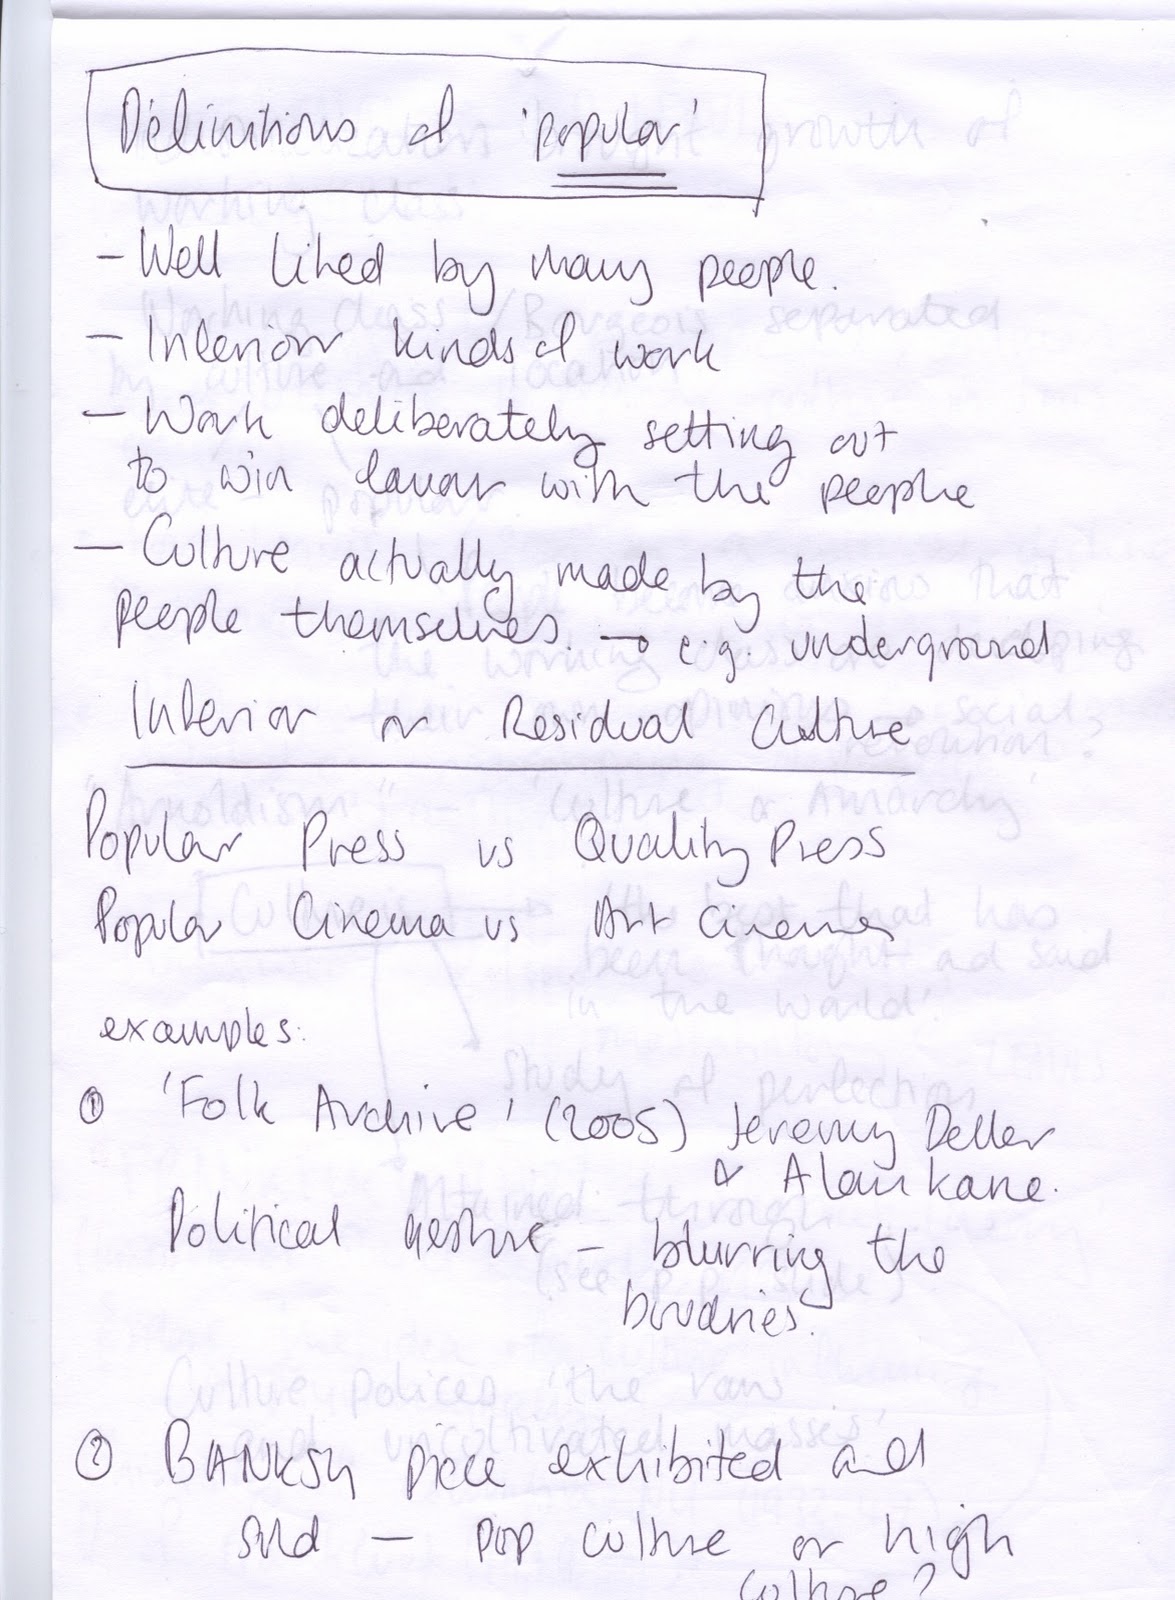 Definitions of 'popular'
- Well liked by many people.
- Inferior kinds of work
- Work deliberately setting out
to win favour with the people
- Culture actually made by the
people themselves. → e.g. underground
Inferior or Residual Culture
Popular Press vs Quality Press
Popular Cinema vs Art Cinema
examples:
① 'Folk Archive' (2005) Jeremy Deller
& Alan Kane.
Political gesture - blurring the
boundries.
② BANKSY piece exhibited and
sold - pop culture or high
culture?